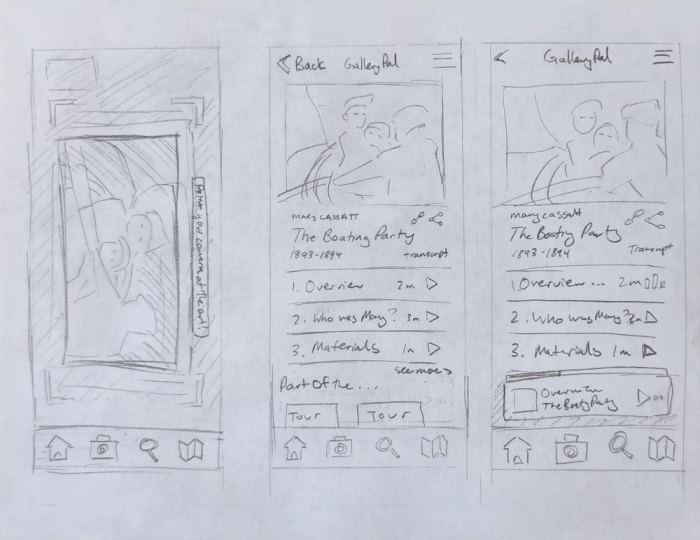 Point your camera at the art!
< Back GalleryPal
MARY CASSATT
The Boating Party
1893-1894 transcript
1. Overview 2m
2. Who was Mary? 3m
3. Materials 1m
see more >
Part Of the ...
Tour Tour
< GalleryPal
mary cassatt
The Boating Party
1893-1894 Transcript
1. Overview ... 2m
2. Who was Mary? 3m
3. Materials 1m
Overview
The Boaty Party